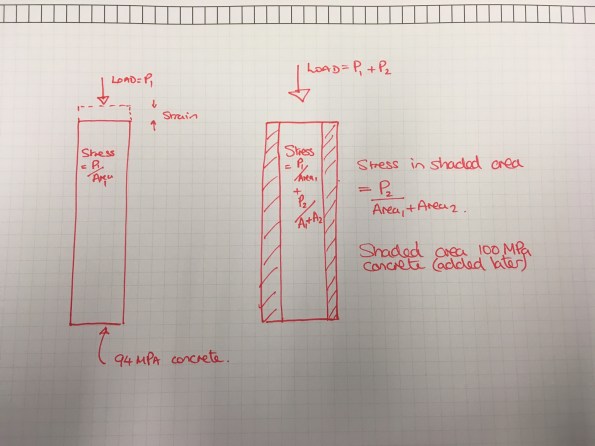 LOAD=P1
Strain
Stress
= P1
/Area1
94 MPA concrete.
LOAD= P1 + P2
Stress
= P1
/Area1
+
P2
/A1+A2
Stress in shaded area
= P2
Area1 + Area2.
Shaded area 100 MPa
concrete (added later)